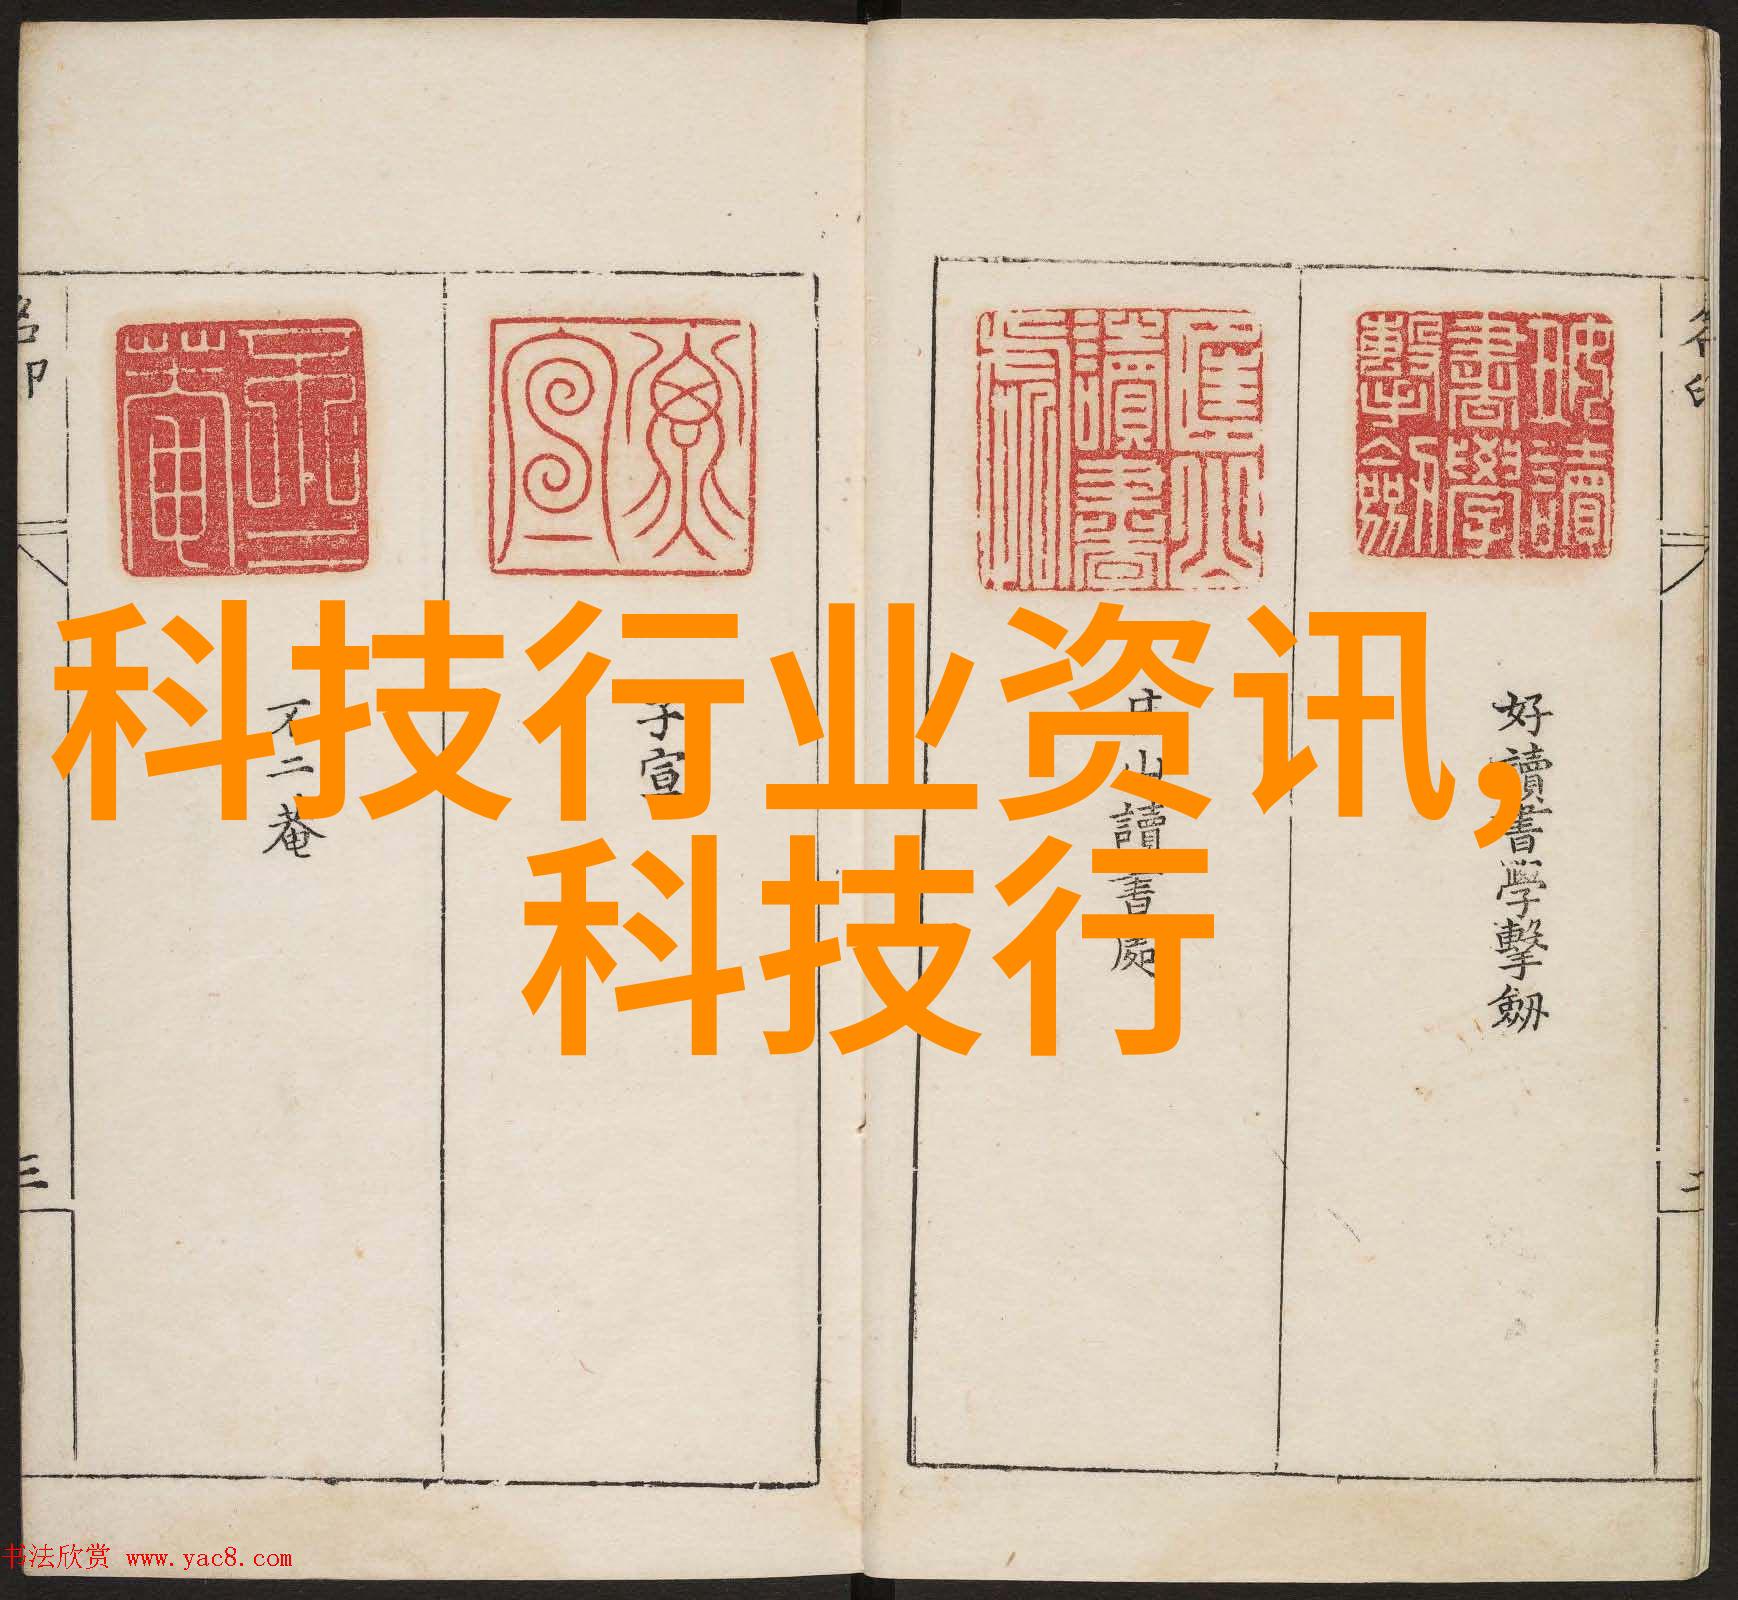 科技行业资讯,
科技行
好讀書學擊劒
山讀書處
子宣
不二菴
三
书法欣赏 www.yac8.com